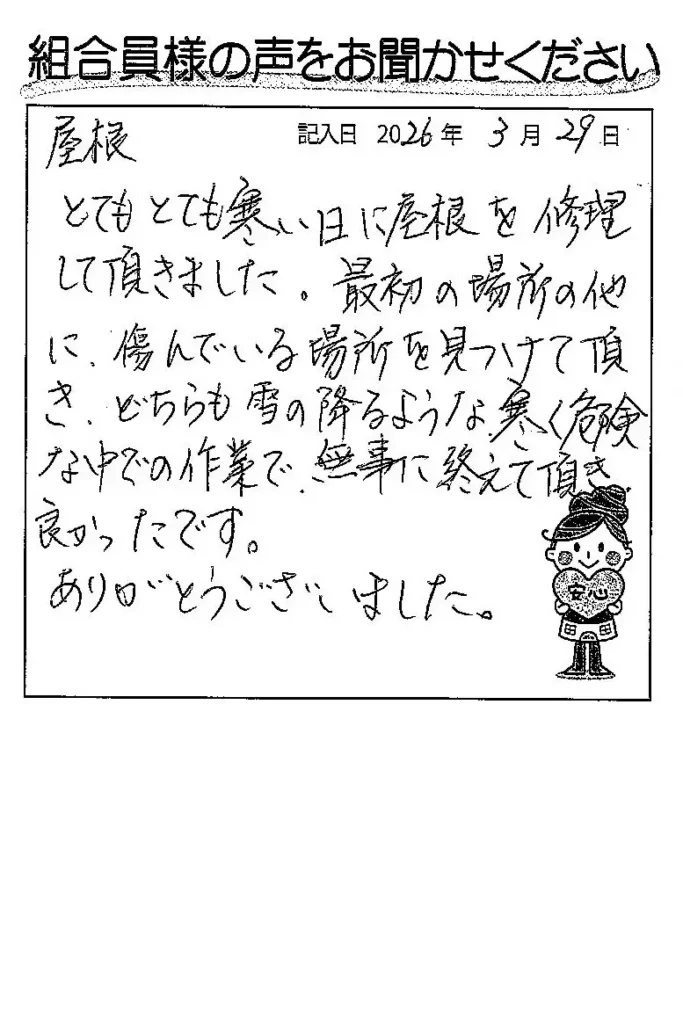 組合員様の声をお聞かせください
屋根
記入日 2026年 3月 29日
とてもとても寒い日に屋根を修理
して頂きました。最初の場所の他
に、傷んでいる場所を見つけて頂
き、どちらも雪の降るような、寒く危険
な中での作業で、無事に終えて頂き
良かったです。
ありがとうございました。
安心